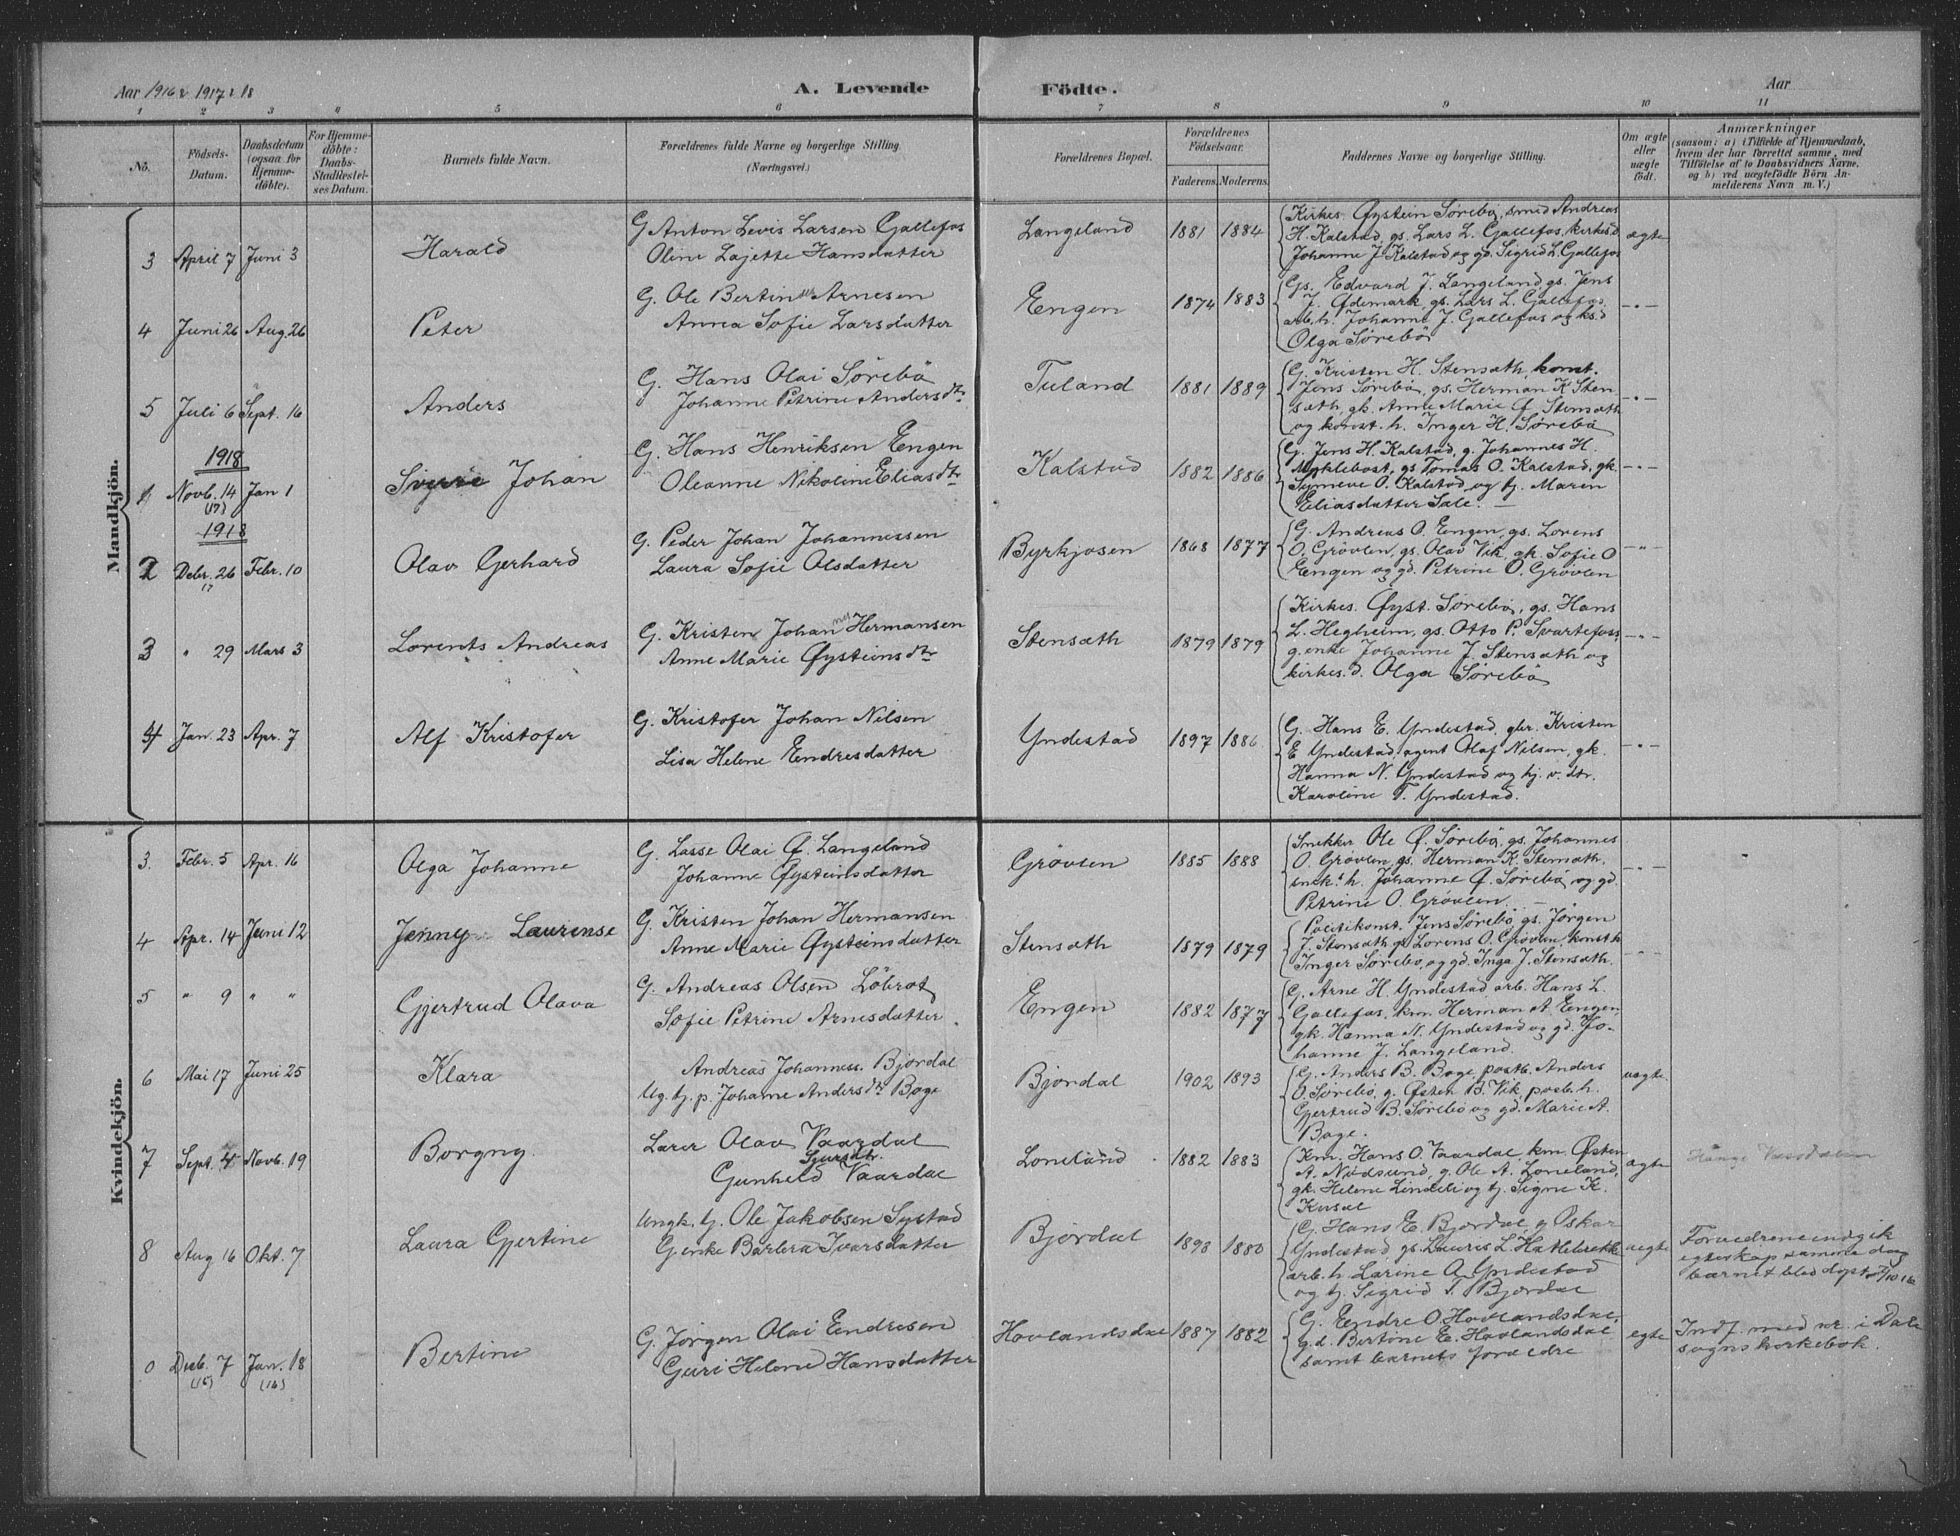 Aar 1916 & 1917 & 18
A. Levende Födte.
Aar
1 2 3 4 5 6 7 8 9 10 11
No.
Födsels-Datum.
Daabsdatum (ogsaa for Hjemme-döbte).
For Hjemme-döbte: Daabs-Stadfæstel-ses Datum.
Barnets fulde Navn.
Forældrenes fulde Navne og borgerlige Stilling.
(Næringsvei.)
Forældrenes Bopæl.
Forældrenes Födselsaar.
Faderens. Moderens.
Faddernes Navne og borgerlige Stilling.
Om ægte eller uægte födt.
Anmærkninger
(saasom: a) i Tilfælde af Hjemmedaab,
hvem der har forrettet samme, med
Tilföielse af to Daabsvidners Navne,
og b) ved uægtefödte Börn An-
melderens Navn m. V.)
Mandkjön.
3 April 7 Juni 3 Harald
G Anton Levis Larsen Gallefos
Oline Lajette Hansdatter
Langeland 1881 1884
Kirkes. Øystein Sørebö, smed Andreas
H. Kalstad, gs. Lars L. Gallefos, kirkes.h.
Johanne J. Kalstad og gd. Sigrid L. Gallefos
ægte
4 Juni 26 Aug. 26 Peter
G. Ole Bertinus Arnesen
Anna Sofie Larsdatter
Engen 1874 1883
Gs. Edvard J. Langeland gs. Jens
J. Ødemark, gs. Lars L. Gallefos,
arb.h. Johanne J. Gallefos og ks.d
Olga Sörebö
- " -
5 Juli 6 Sept. 16 Anders
G. Hans Olai Sörebö
Johanne Petrine Andersdtr
Tuland 1881 1889
G. Kristen H. Stensæth, konst.
Jens Sörebö, gs. Herman K Sten
sæth, gk. Anne Marie Ø. Stensæth
og konst. h. Inger H. Sörebö
- " -
1918
1 Novb. 14 Jan 1
(17)
Johan
G. Hans Henriksen Engen
Oleanne Nikoline Eliasdtr
Kalstad 1882 1886
G. Jens H. Kalstad, g. Johannes H.
Myklebost, gs Tomas O. Kalstad, gk.
Synneve O. Kalstad og tj. Maren
Eliasdatter Sale. -
- " -
1918
2 Debr. 26 Febr. 10
17
Olav Gerhard
G. Peder Johan Johannessen
Laura Sofie Olsdatter
Byrkjosen 1868 1877
G. Andreas O. Engen, gs. Lorens
O. Grövlen, gs. Olav Vik, gk. Sofie O
Engen og gd. Petrine O. Grövlen
- " -
3 " 29 Mars 3 Lorents Andreas
G. Kristen Johan Hermansen
Anne Marie Øysteinsdtr
Stensæth 1879 1879
Kirkes. Øyst. Sörebö, gs. Hans
L. Hegheim, gs. Otto P. Svartefoss,
g. enke Johanne J. Stensæth og
kirkes. d. Olga Sörebö
- " -
4 Jan. 23 Apr. 7 Alf Kristofer
G. Kristofer Johan Nilsen
Lisa Helene Endresdatter
Yndestad 1897 1886
G. Hans E. Yndestad, gbr. Kristen
E Yndestad, agent Olaf Nilsen, gk.
Hanna N. Yndestad og hj. v. dtr.
Karoline T. Yndestad.
- " -
Kvindekjön.
3. Febr. 5 Apr. 16 Olga Johanne
G. Lasse Olai Ø. Langeland
Johanne Øysteinsdatter
Grövlen 1885 1888
Snekker Ole Ø. Sörebö, gs. Johannes
O. Grövlen, gs. Herman K. Stensæth,
snek. h. Johanne Ø. Sörebö og gd.
Petrine O. Grövlen. -
- " -
4 Apr. 14 Juni 12 Jenny Laurense
G. Kristen Johan Hermansen
Anne Marie Øysteinsdatter
Stensæth 1879 1879
Politikonst. Jens Sörebö gs. Jörgen
J. Stensæth gs. Lorens O. Grövlen, konst h
Inger Sörebö, og gd. Inga J. Stensæth.
- " -
5 " 9 " " Gjertrud Olava
G. Andreas Olsen Löbrot
Sofie Petrine Arnesdatter
Engen 1882 1877
G. Arne H. Yndestad arb. Hans L.
Gallefos, km. Herman A. Engen,
gk. Hanna N. Yndestad og gd. Jo-
hanne J. Langeland.
6 Mai 17 Juni 25 Klara
Andreas Johanness. Björdal
Ug. tj. p. Johanne Andersdtr Boge
Björdal 1902 1893
G. Anders B. Boge, postb. Anders
O. Sörebö, g. Østen B. Vik, postb. h.
Gjertrud B. Sörebö og gd. Marie A.
Boge.
uægte
7 Sept. 4 Novb. 19 Borgny
Lærer Olav Vaardal
Sjursdtr.
Gunhild Vaardal
Loneland 1882 1883
Km. Hans O. Vaardal, km. Østen
A. Nödsund, g. Ole A. Loneland,
gk. Helene Lindeli og tj. Signe K.
ægte
8 Aug 16 Okt. 7 Laura Gjertine
Ungk. tj. Ole Jakobsen Systad
G. enke Barbra Ivarsdatter
Björdal 1893 1880
G. Hans E. Björdal, g. Oskar
Yndestad gs. Lauris L. Hatlebrekk
arb. h. Larine A. Yndestad
og tj. Sigrid T. Björdal
uegte
Foreldrene indgik
egteskap samme dag
barnet blev döpt 7/10 16
0 Desb. 7 Jan. 18
(15) (16)
Bertine
G. Jörgen Olai Endresen
Guri Helene Hansdatter
Hovlandsdal 1887 1882
G. Endre O. Hovlandsdal,
g.d. Bertine E. Hovlandsdal
samt barnets foreldre
egte
Indf. med nr. i Dale
sogns kirkebok.